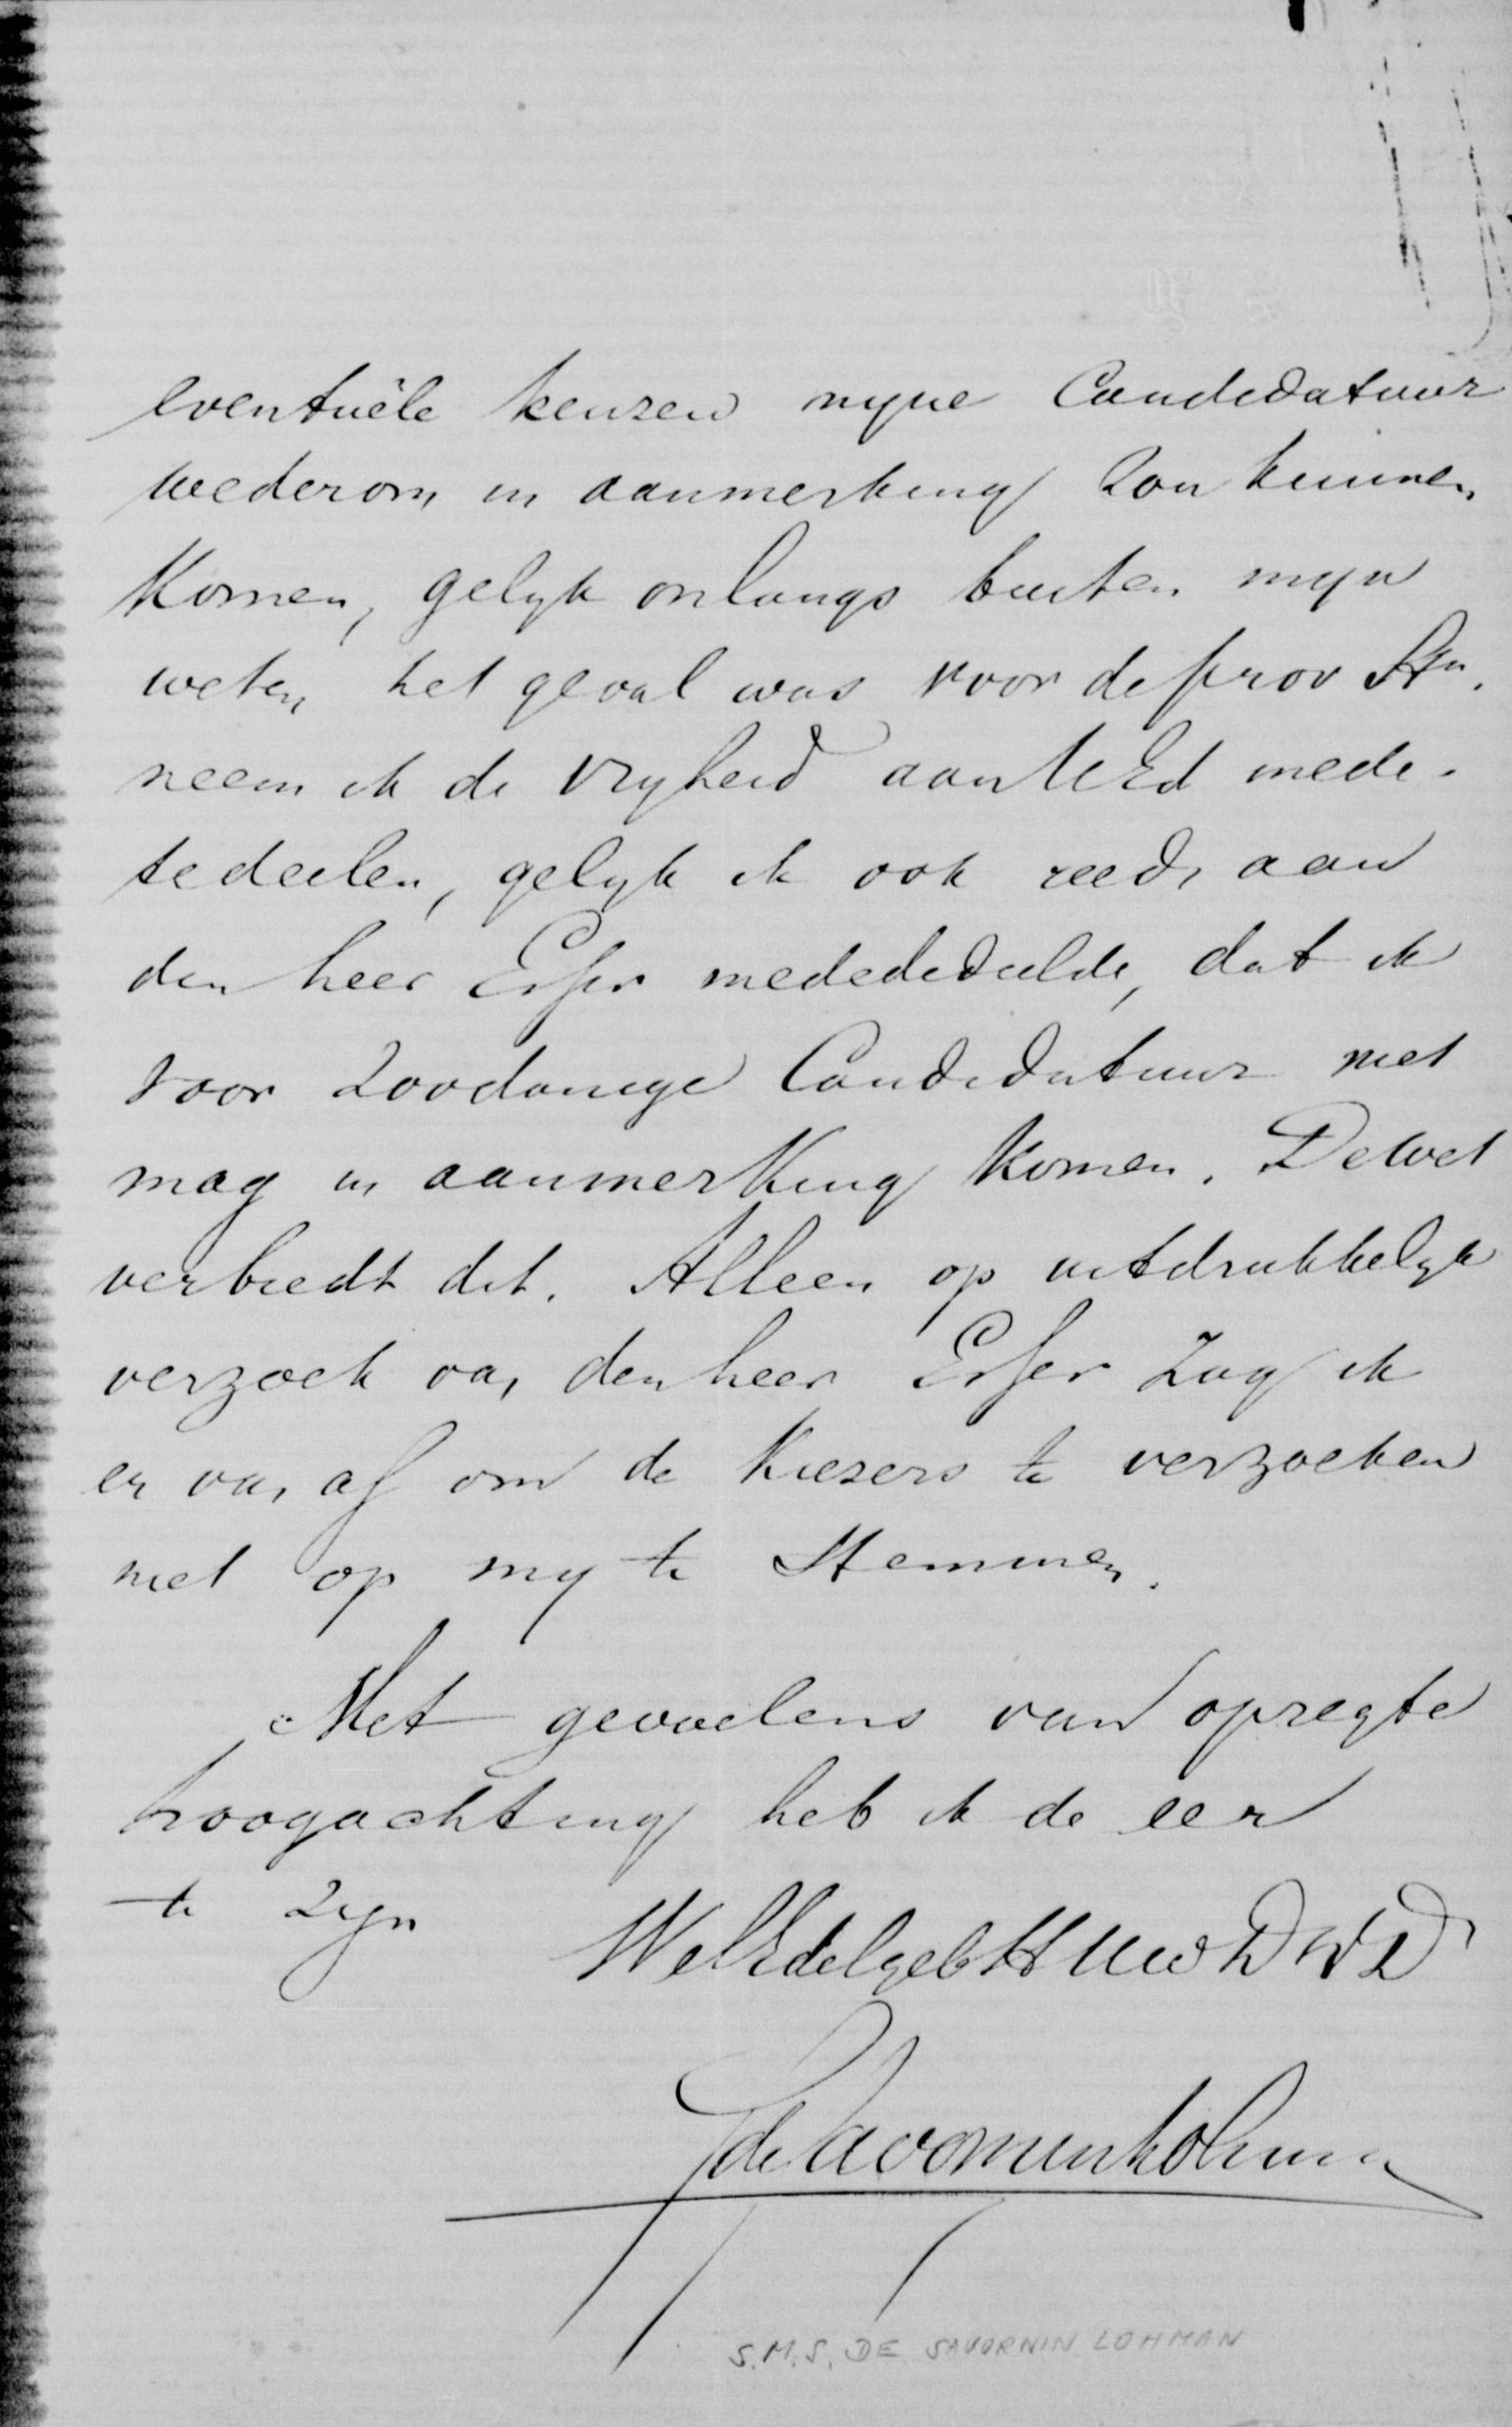 eventuële keuzen myne Candidatuur
wederom in aanmerking zou kunnen
komen, gelyk onlangs buiten myn
weten het geval was voor de prov Stn.
neem ik de vryheid aan UEd mede-
tedeelen, gelyk ik ook reeds aan
den heer Esser medededeelde, dat ik
voor zoodanige Candidatuur niet
mag in aanmerking komen. De wet
verbiedt dit. Alleen op uitdrukkelyk
verzoek van den heer Esser zag ik
er van af om de kiezers te verzoeken
niet op my te stemmen.
Met gevoelens van opregte
hoogachting heb ik de eer
te zyn WelEdelgeb H UwD WD
de Savornin Lohman
S.M.S. DE SAVORNIN LOHMAN